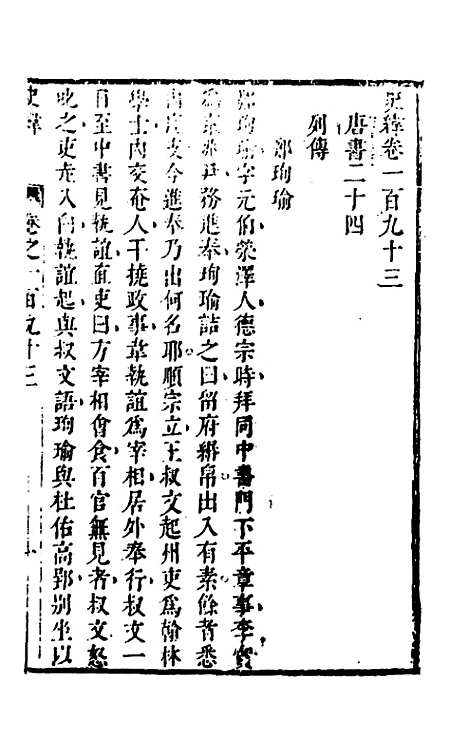 史緯卷一百九十三
唐書二十四
列傳
鄭珣瑜
鄭珣瑜字元伯滎澤人德宗時拜同中書門下平章事李實
爲京兆尹務進奉珣瑜詰之曰留府緡帛出入有素餘者悉
內度支今進奉乃出何名耶順宗立王叔文起州吏爲翰林
學士內交奄人干撓政事韋執誼爲宰相居外奉行叔文一
日至中書見執誼直吏曰方宰相會食百官無見者叔文怒
叱之吏走入白執誼起與叔文語珣瑜與杜佑高郢別坐以
史緯
卷之一百九十三